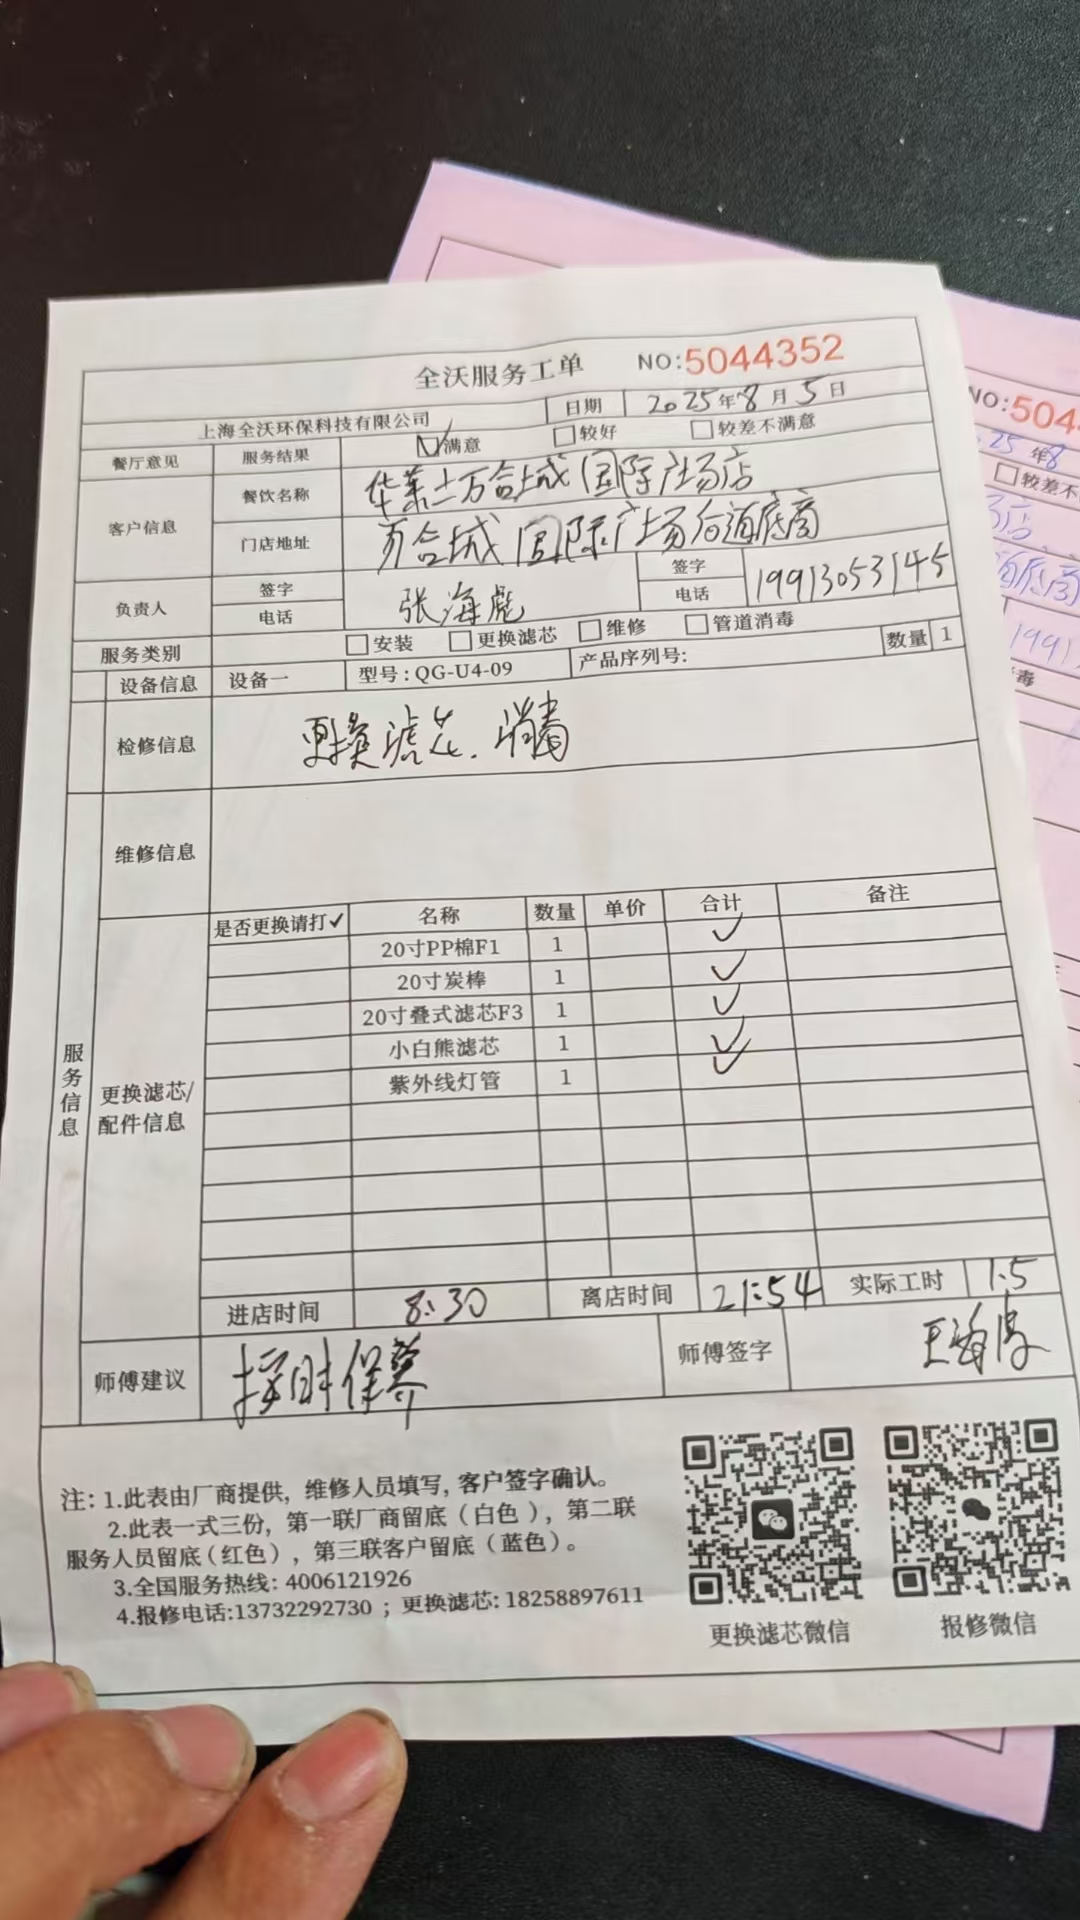 全沃服务工单 NO:5044352
上海全沃环保科技有限公司 日期 2025年8月5日
餐厅意见 服务结果 ☑满意 □较好 □较差不满意
客户信息 餐饮名称 华莱士万合城国际广场店
门店地址 万合城国际广场后海底商
负责人 签字 电话 张海彪 签字 电话 19913053145
服务类别 □安装 □更换滤芯 □维修 □管道消毒
设备信息 设备一 型号:QG-U4-09 产品序列号: 数量 1
检修信息 更换滤芯.消毒
维修信息
服务信息
更换滤芯/配件信息
是否更换请打✓ 名称 数量 单价 合计 备注
20寸PP棉F1 1 ✓
20寸炭棒 1 ✓
20寸叠式滤芯F3 1 ✓
小白熊滤芯 1 ✓
紫外线灯管 1 ✓
进店时间 8:30 离店时间 21:54 实际工时 1.5
师傅建议 按时保养 师傅签字
注:1.此表由厂商提供,维修人员填写,客户签字确认。
2.此表一式三份,第一联厂商留底(白色),第二联
服务人员留底(红色),第三联客户留底(蓝色)。
3.全国服务热线:4006121926
4.报修电话:13732292730;更换滤芯:18258897611
更换滤芯微信 报修微信
NO:504
25年8
□较差不
店
海底商
1991
毒